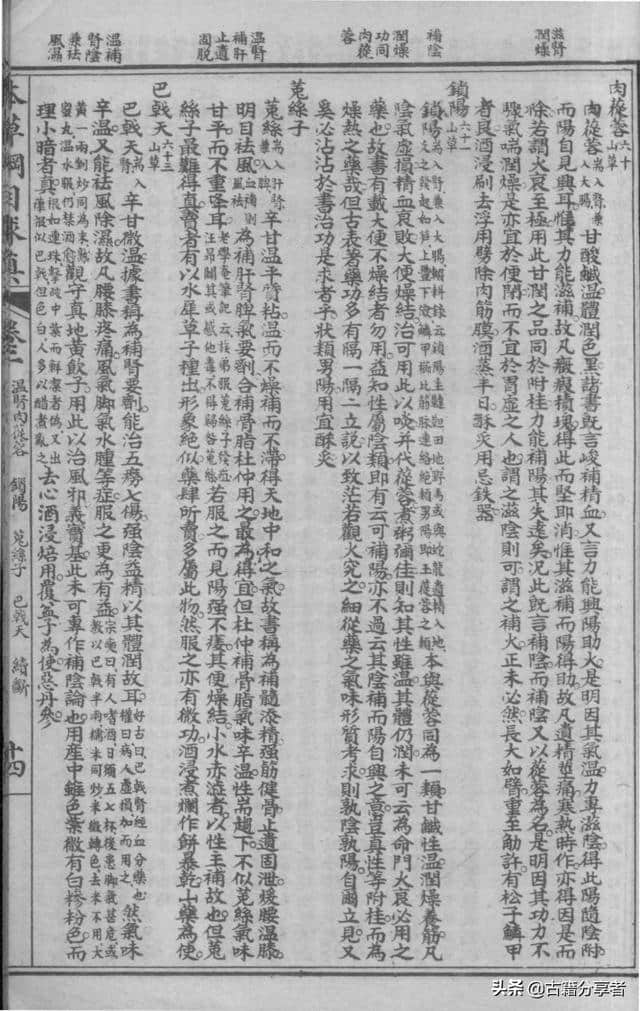 滋腎潤燥
補陰
潤燥功同肉蓯蓉
溫腎補肝止遺固脫
溫補腎陰兼祛風濕
肉蓯蓉 六十 山草
肉蓯蓉 崙入腎兼入大腸 甘酸鹹溫體潤色黑諸書既言峻補精血又言力能興陽助火是明因其氣溫力專滋陰得此陽隨陰附
而陽自見興耳惟其力能滋補故凡癥瘕積塊得此而堅即消惟其滋補而陽得助故凡遺精莖痛寒熱時作亦得因是而
除若謂火衰至極用此甘潤之品同於附桂力能補陽其失遠矣況此既言補陰而補陰又以蓯蓉為名是明因其功力不
驟氣喘潤燥是亦宜於便閉而不宜於胃虛之人也謂之滋陰則可謂之補火正未必然長大如臂重至觔許有松子鱗甲
者良酒浸刷去浮甲劈除內筋膜酒蒸半日酥炙用忌鉄器
鎖陽 六十一 山草
鎖陽 崙入腎兼入大腸 本與蓯蓉同為一類甘鹹性溫潤燥養筋凡
陰氣虛損精血衰敗大便燥結治可用此以啖并代蓯蓉煮粥彌佳則知其性雖溫其體仍潤未可云為命門火衰必用之
藥也故書有載大便不燥結者勿用益知性屬陰類即有云可補陽亦不過云其陰補而陽自興之意豈真性等附桂而為
燥熱之藥哉但古表著藥功多有隔一隔二立說以致茫若觀火究之細從藥之氣味形質考求則孰陰孰陽自爾立見又
奚必沾沾於書治功是求者乎狀類男陽用宜酥炙
菟絲子
菟絲 崙入肝腎兼入脾 辛甘溫平質粘溫而不燥補而不滯得天地中和之氣故書稱為補髓添精強筋健骨止遺固泄煖腰溫膝
明目祛風 為補肝腎脾氣要劑合補骨脂杜仲用之最為得宜但杜仲補骨脂氣味辛溫性耑趨下不似菟絲氣味
甘平而不重降耳 若服之而見陽強不痿其便燥結小水赤澁者以性主補故也但菟
絲子最難得真賣者有以水犀草子種出形象絶似藥肆所賣多屬此物然服之亦有微功酒浸煮爛作餅暴乾山藥為使
巴戟天 六十三 山草
巴戟天 崙入腎 辛甘微溫據書稱為補腎要劑能治五癆七傷強陰益精以其體潤故耳 好古曰巴戟腎經血分藥也權曰病人虛損加而用之 然氣味
辛溫又能祛風除濕故凡腰膝疼痛風氣脚氣水腫等症服之更為有益 宗奭曰有人嗜酒日須五七杯後患脚氣甚危或教以巴戟半兩糯米同炒米微轉色去米不用大
黃一兩剉炒同為末熟蜜丸溫水嚥仍禁酒愈 觀守真地黃飲子用此以治風邪義實基此未可專作補陰論也用産中雖色紫微有白糝粉色而
理小暗者真 去心酒浸焙用覆盆子為使惡丹參
本草綱目求真 卷二 溫腎肉蓯蓉 鎖陽 菟絲子 巴戟天 續斷 十四
头条 @古籍分享者